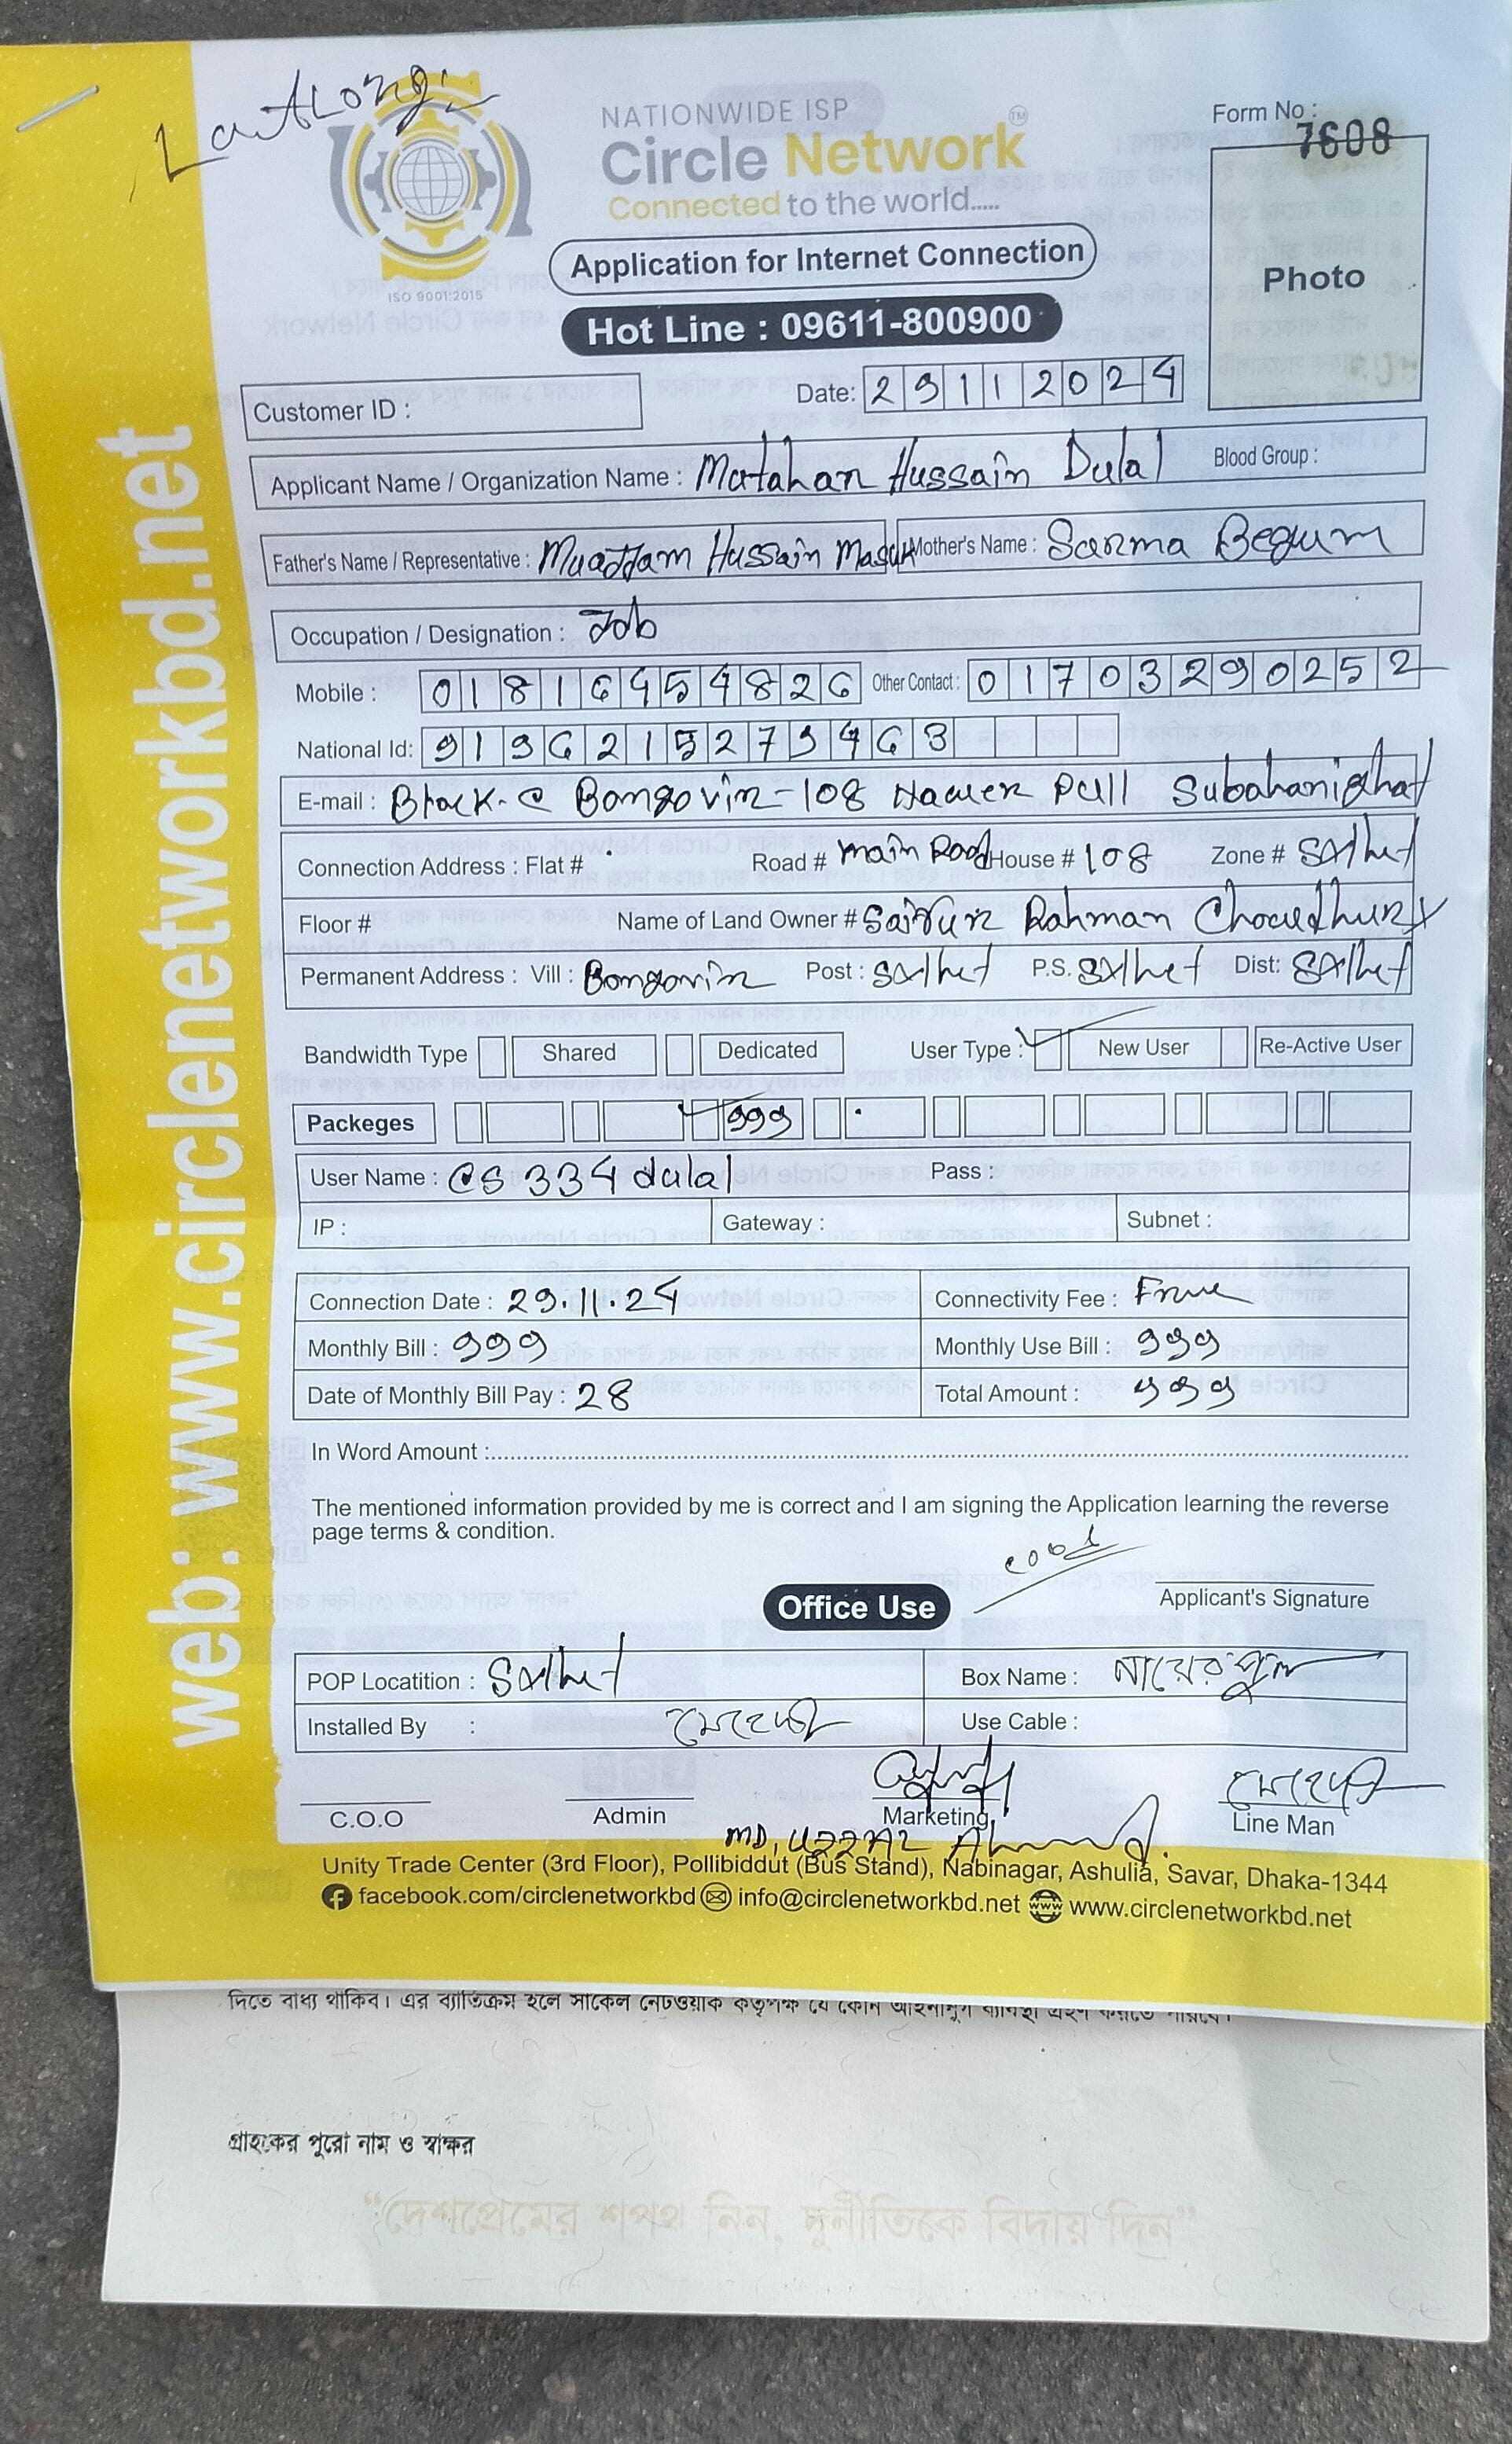 LautLong
NATIONWIDE ISP
Circle Network™
Connected to the world.....
ISO 9001:2015
Form No :
7608
Photo
Application for Internet Connection
Hot Line : 09611-800900
Customer ID :
Date: 29112024
Applicant Name / Organization Name : Matahan Hussain Dulal Blood Group :
Father's Name / Representative : Muajjam Hussain Masuk Mother's Name : Sarma Begum
Occupation / Designation : Job
Mobile : 01816454826 Other Contact : 01703290252
National Id: 9196215279463
E-mail : Block-C Bongovir-108 Nawer Pull Subahanighat
Connection Address : Flat # Road # main Road House # 108 Zone # Sylhet
Floor # Name of Land Owner # Saidur Rahman Chowdhury
Permanent Address : Vill : Bongovir Post : Sylhet P.S. Sylhet Dist: Sylhet
Bandwidth Type Shared Dedicated User Type : New User Re-Active User
Packeges 999
User Name : CS 334 dulal Pass :
IP : Gateway : Subnet :
Connection Date : 29.11.24 Connectivity Fee : Free
Monthly Bill : 999 Monthly Use Bill : 999
Date of Monthly Bill Pay : 28 Total Amount : 999
In Word Amount :
The mentioned information provided by me is correct and I am signing the Application learning the reverse
page terms & condition.
Office Use
Applicant's Signature
POP Locatition : Sylhet Box Name : নায়েরপুল
Installed By : মেহেদী Use Cable :
মেহেদী
C.O.O Admin Marketing Line Man
MD, UZZAL Ahmed.
Unity Trade Center (3rd Floor), Pollibiddut (Bus Stand), Nabinagar, Ashulia, Savar, Dhaka-1344
facebook.com/circlenetworkbd info@circlenetworkbd.net www.circlenetworkbd.net
web: www.circlenetworkbd.net
দিতে বাধ্য থাকিব। এর ব্যতিক্রম হলে সার্কেল নেটওয়ার্ক কর্তৃপক্ষ যে কোন আইনানুগ ব্যবস্থা গ্রহণ করতে পারবে।
গ্রাহকের পুরো নাম ও স্বাক্ষর
“দেশপ্রেমের শপথ নিন, দুর্নীতিকে বিদায় দিন”